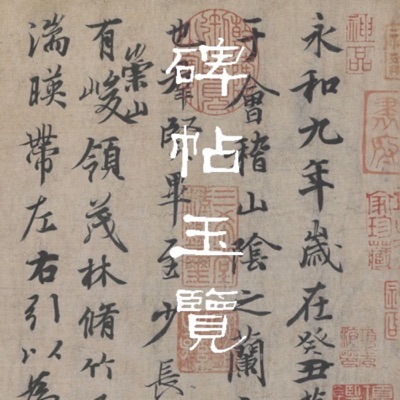 碑帖玉覽
永和九年歲在癸丑
于會稽山陰之蘭
也羣賢畢至少長
有崇山峻領茂林脩竹
湍暎帶左右引以為
神品
珍藏